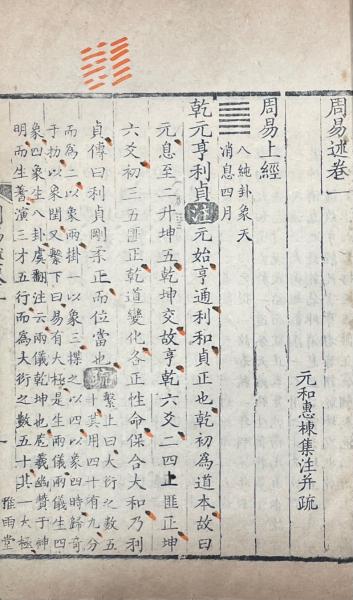 周易述卷一
元和惠棟集注并疏
周易上經
八純卦象天
消息四月
乾元亨利貞注元始亨通利和貞正也乾初爲道本故曰
元息至二升坤五乾坤交故亨乾六爻二四上匪正坤
六爻初三五匪正乾道變化各正性命保合大和乃利
貞傳曰利貞剛柔正而位當也疏
繫上曰大衍之數五
十其用四十有九分
而爲二以象兩掛一以象三揲之以四以象四時歸奇
于扐以象閏又繫下曰易有大極是生兩儀兩儀生四
象四象生八卦虞翻注云兩儀乾坤也庖羲幽贊于神
明而生蓍演三才五行而爲大衍之數五十其一大極
雅雨堂